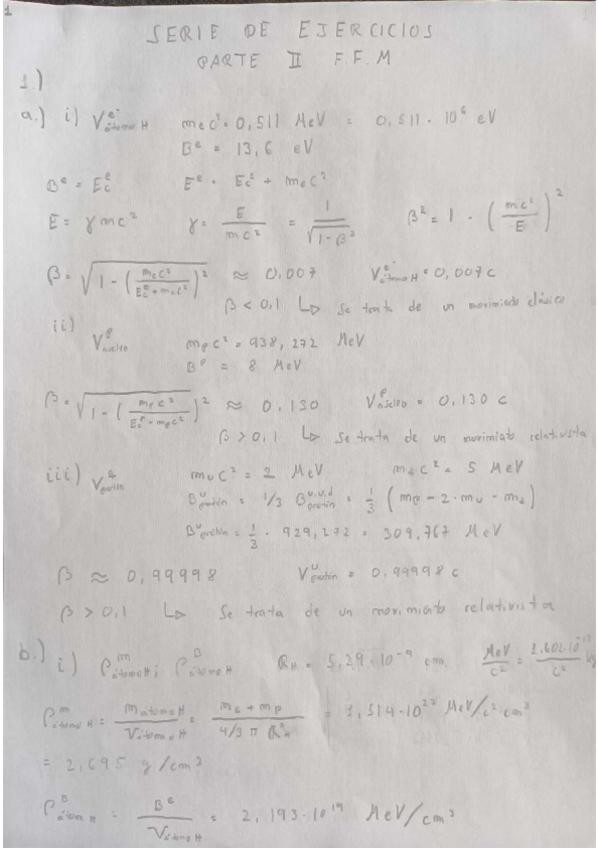 1
SERIE DE EJERCICIOS
PARTE II F.F.M
1.)
a.) i) V^e-_átomo H m_e c² = 0,511 MeV = 0,511 · 10⁶ eV
B^e = 13,6 eV
B^e = E_c^e E^e = E_c^e + m_e c²
E = γ m c² γ = E / m c² = 1 / √(1-β²) β² = 1 - (m c² / E)²
β = √(1 - (m_e c² / (E_c^e + m_e c²))²) ≈ 0,007 V^e-_átomo H = 0,007 c
β < 0,1 ↳ Se trata de un movimiento clásico
ii)
V^p_núcleo m_p c² = 938,272 MeV
B^p = 8 MeV
β = √(1 - (m_p c² / (E_c^p + m_p c²))²) ≈ 0,130 V^p_núcleo = 0,130 c
β > 0,1 ↳ Se trata de un movimiento relativista
iii) V^q_protón m_u c² = 2 MeV m_d c² = 5 MeV
B^u_protón = 1/3 B^u,u,d_protón = 1/3 (m_p - 2 · m_u - m_d)
B^u_protón = 1/3 · 929,272 = 309,767 MeV
β ≈ 0,99998 V^u_protón = 0,99998 c
β > 0,1 ↳ Se trata de un movimiento relativista
b.) i) ρ^m_átomo H ; ρ^B_átomo H R_H = 5,29 · 10⁻⁹ cm MeV / c² = 1.602 · 10 / c² kg
ρ^m_átomo H = m_átomo H / V_átomo H = (m_e + m_p) / (4/3 π R³_H) = 1,514 · 10²⁷ MeV/c² cm³
= 2,695 g/cm³
ρ^B_átomo H = B^e / V_átomo H = 2,193 · 10¹⁹ MeV/cm³